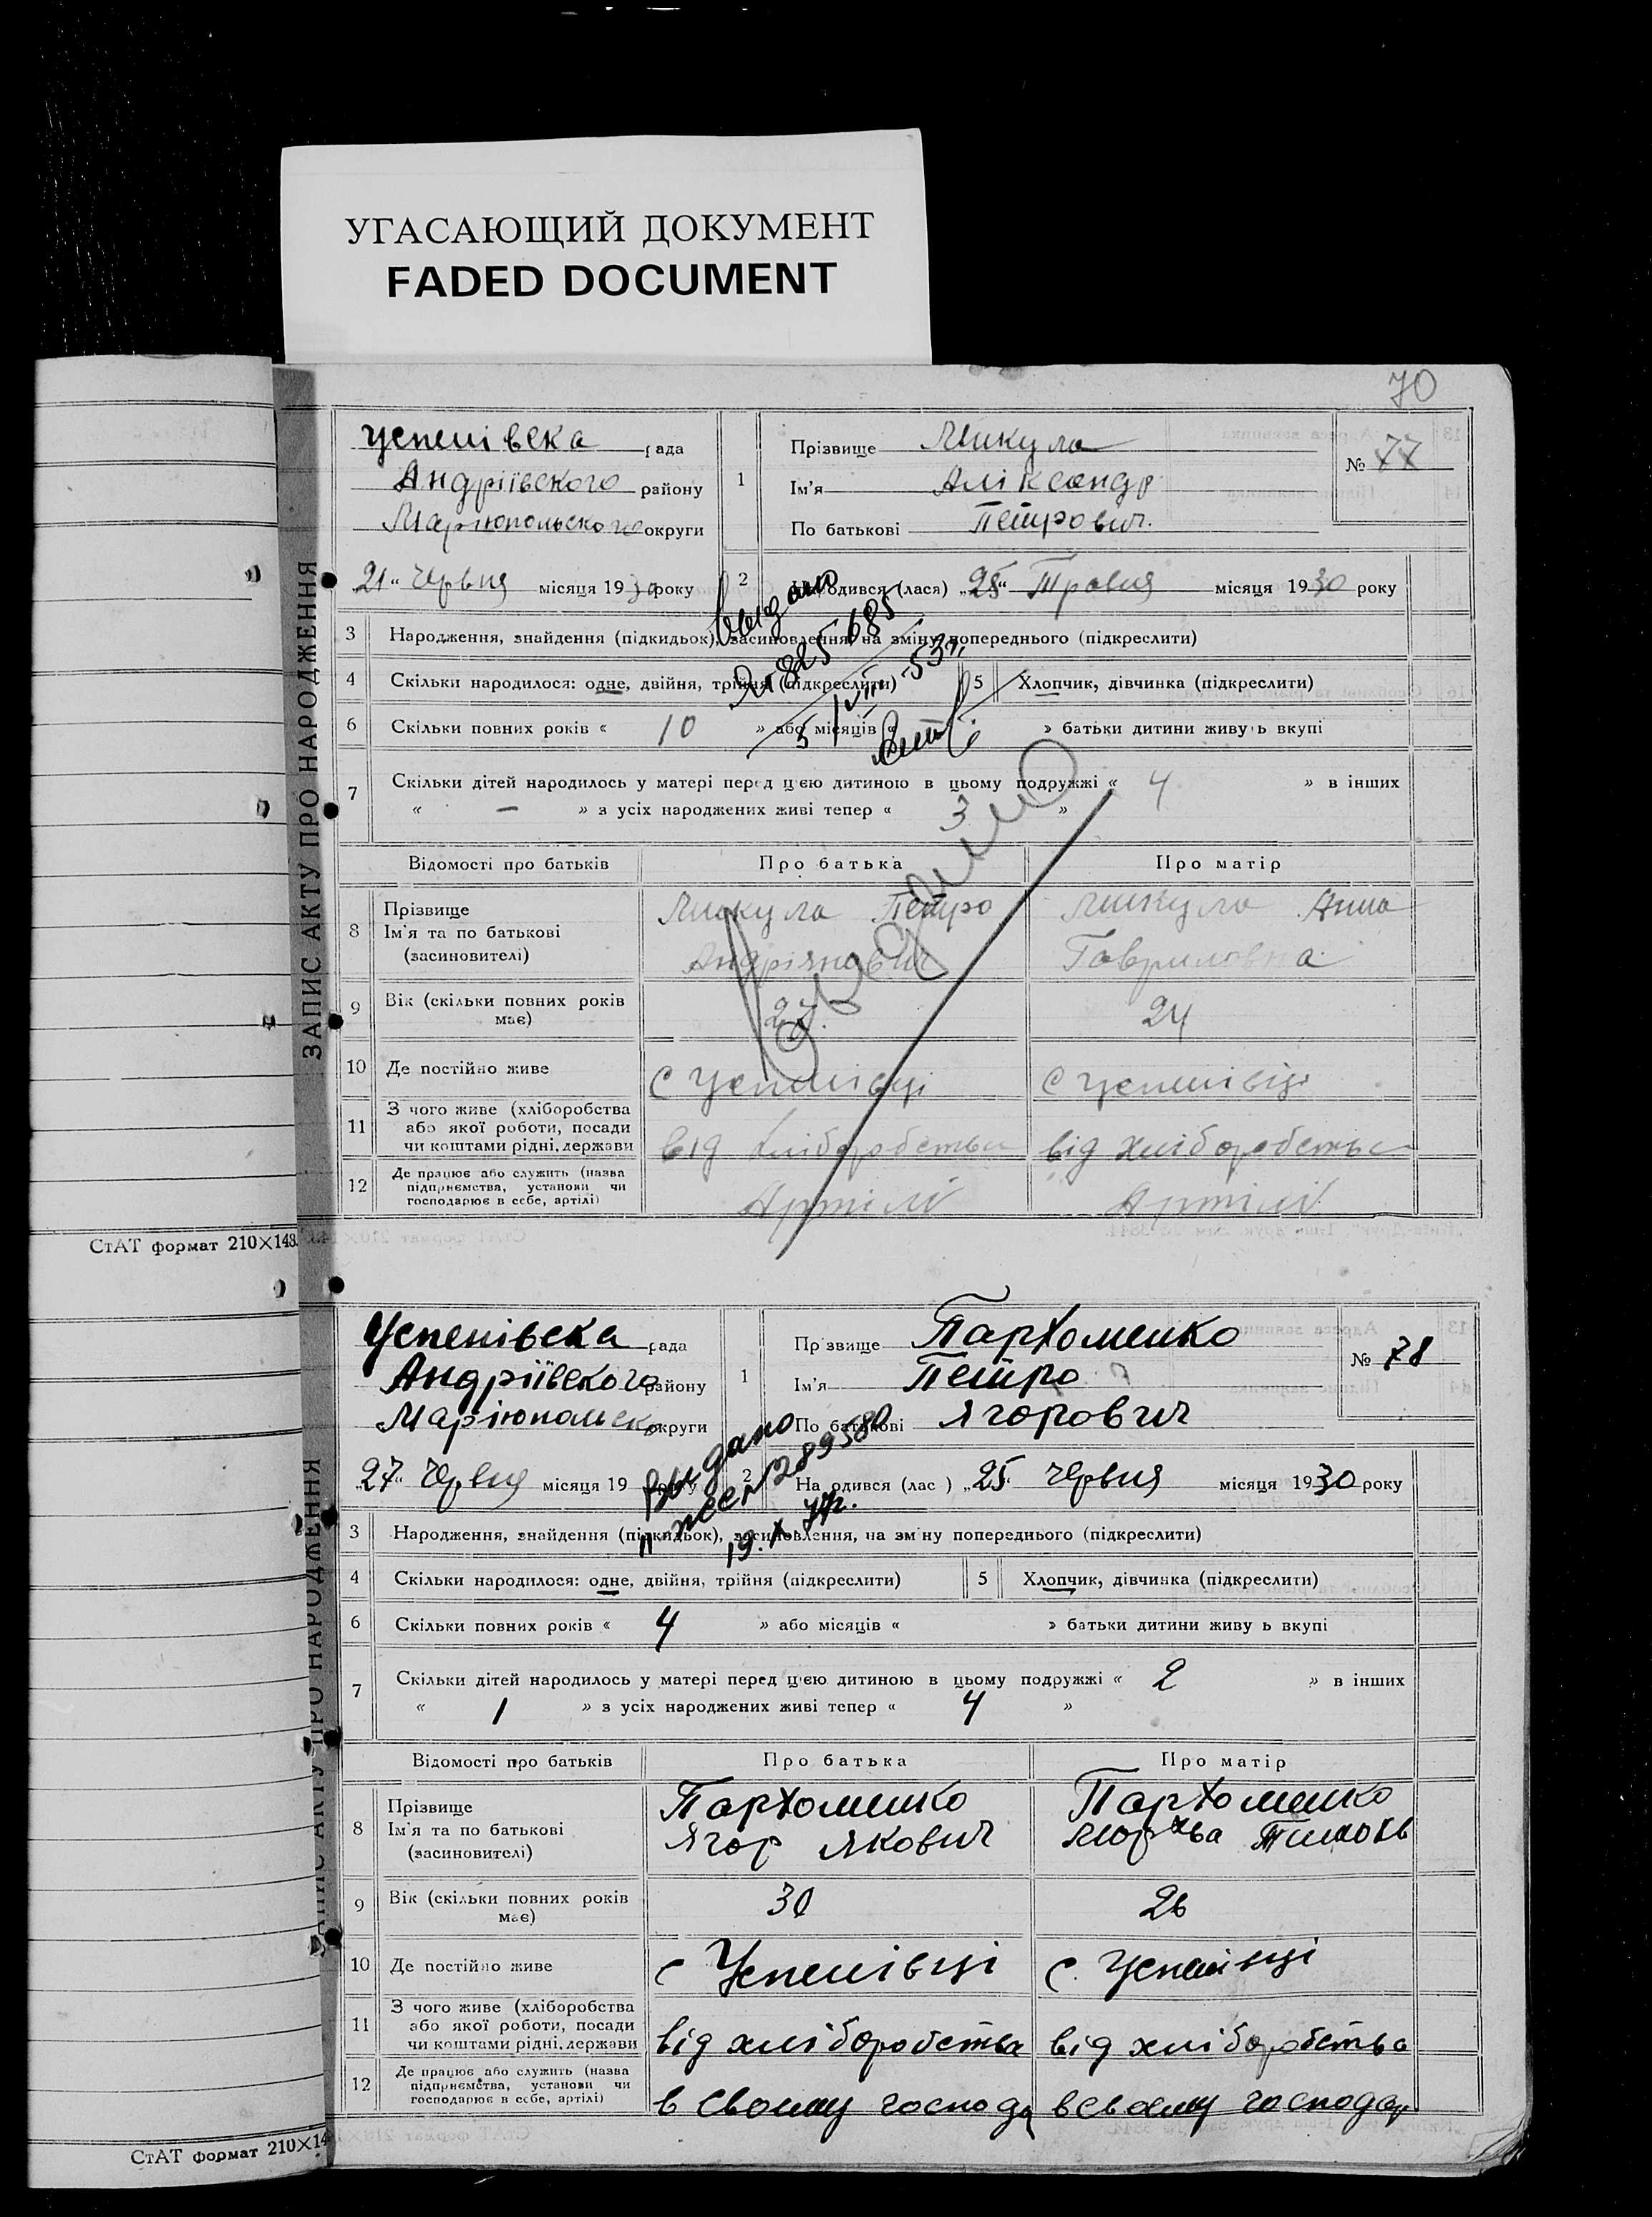 УГАСАЮЩИЙ ДОКУМЕНТ
FADED DOCUMENT
70
ЗАПИС АКТУ ПРО НАРОДЖЕННЯ
Успенівска рада
Андріївского району
Маріюпольского округи
1
Прізвище Микула
Ім'я Аліксандр
По батькові Петрович.
№ 77
„21" Червня місяця 1930 року
2 Народився (лася) „25" Травня місяця 1930 року
3 Народження, знайдення (підкидьок), засиновлення, на зміну попереднього (підкреслити)
4 Скільки народилося: одне, двійня, трійня (підкреслити)
5 Хлопчик, дівчинка (підкреслити)
6 Скільки повних років « 10 » або місяців « » батьки дитини живуть вкупі
7 Скільки дітей народилось у матері перед цією дитиною в цьому подружжі « 4 » в інших
« — » з усіх народжених живі тепер « 3 »
Відомості про батьків Про батька Про матір
8 Прізвище
Ім'я та по батькові
(засиновителі)
Микула Петро
Андріянович
Микула Анна
Гавриловна
9 Вік (скільки повних років
має)
24
10 Де постійно живе с Успенівці с Успенівці
11 З чого живе (хліборобства
або якої роботи, посади
чи коштами рідні, держави
від хліборобства від хліборобства
12 Де працює або служить (назва
підприємства, установи чи
господарює в себе, артілі)
Артілі Артілі
СтАТ формат 210×148.
ЗАПИС АКТУ ПРО НАРОДЖЕННЯ
Успенівска рада
Андріївского району
Маріюпольск округи
1
Прізвище Пархоменко
Ім'я Петро
По батькові Ягорович
№ 78
„27" Червня місяця 19 року
Выдано
№ 289580
19.X
2 Народився (лас ) „25" Червня місяця 1930 року
3 Народження, знайдення (підкидьок), засиновлення, на зміну попереднього (підкреслити)
4 Скільки народилося: одне, двійня, трійня (підкреслити)
5 Хлопчик, дівчинка (підкреслити)
6 Скільки повних років « 4 » або місяців « » батьки дитини живу ь вкупі
7 Скільки дітей народилось у матері перед цією дитиною в цьому подружжі « 2 » в інших
« 1 » з усіх народжених живі тепер « 4 »
Відомості про батьків Про батька Про матір
8 Прізвище
Ім'я та по батькові
(засиновителі)
Пархоменко
Ягор Якович
Пархоменко
9 Вік (скільки повних років
має)
30 26
10 Де постійно живе с Успенівці с. Успенівці
11 З чого живе (хліборобства
або якої роботи, посади
чи коштами рідні, держави
від хліборобства від хліборобства
12 Де працює або служить (назва
підприємства, установи чи
господарює в себе, артілі)
в своєму господа в своєму господар
СтАТ формат 210×14